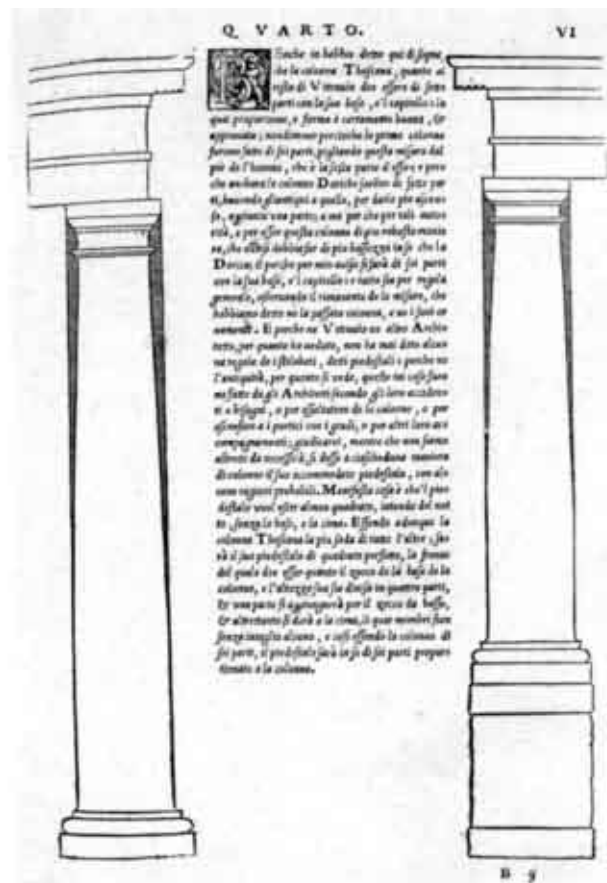 Q VARTO. VI
che la colonna Thoscana, quanto al
testo di Vitruuio dee essere di sette
parti con la sua base, e'l capitello: la
qual proportione, e forma è certamente buona, &
approuata; nondimeno percioche le prime colonne
furono fatte di sei parti, pigliando questa misura dal
piè de l'huomo, che è la sesta parte d'esso; e pero
che anchora le colonne Doriche sono di sette par
ti, hauendo gli antiqui a quella, per darle più
una parte; a me par che per tale
rità, e per esser questa colonna di più robusta manie
ra, che debbia esser di più bassezza in se che la
Dorica; il perche per mio auiso si farà di sei parti
con la sua base, e'l capitello: e tutto sia per regola
generale, osseruando il rimanente de le misure, che
habbiamo detto ne la passata colonna, e ne i suoi or
namenti. E perche ne Vitruuio ne altro Archi
tetto, per quanto ho ueduto, non ha mai dato alcu
na regola de i stilobati, detti piedestali: perche ne
l'antiquità, per quanto si uede, queste tai cose furo
no fatte da gli Architetti secondo gli loro acciden
ti e bisogni, o per essaltatione de le colonne, o per
ascendere a i portici con i gradi, o per altri loro ac
compagnamenti; giudicarei, mentre che non siamo
astretti da necessità, si desse a ciascheduna maniera
di colonne il suo accommodato piedestalo, con alc
une ragioni probabili. Manifesta cosa è che'l pie
destalo uuol esser almen quadrato, intendo del net
to, senza la base, e la cima. Essendo adunque la
colonna Thoscana la più soda di tutte l'altre, sa
rà il suo piedestalo di quadrato perfetto, la fronte
del quale dee esser quanto il zocco de la base de la
colonna, e l'altezza sua sia diuisa in quattro parti,
& una parte si aggiungerà per il zocco da basso,
& altrettanto si darà a la cima, li quai membri sian
senza intaglio alcuno, e cosi essendo la colonna di
sei parti, il piedestalo sarà in se di sei parti propor
tionato a la colonna.